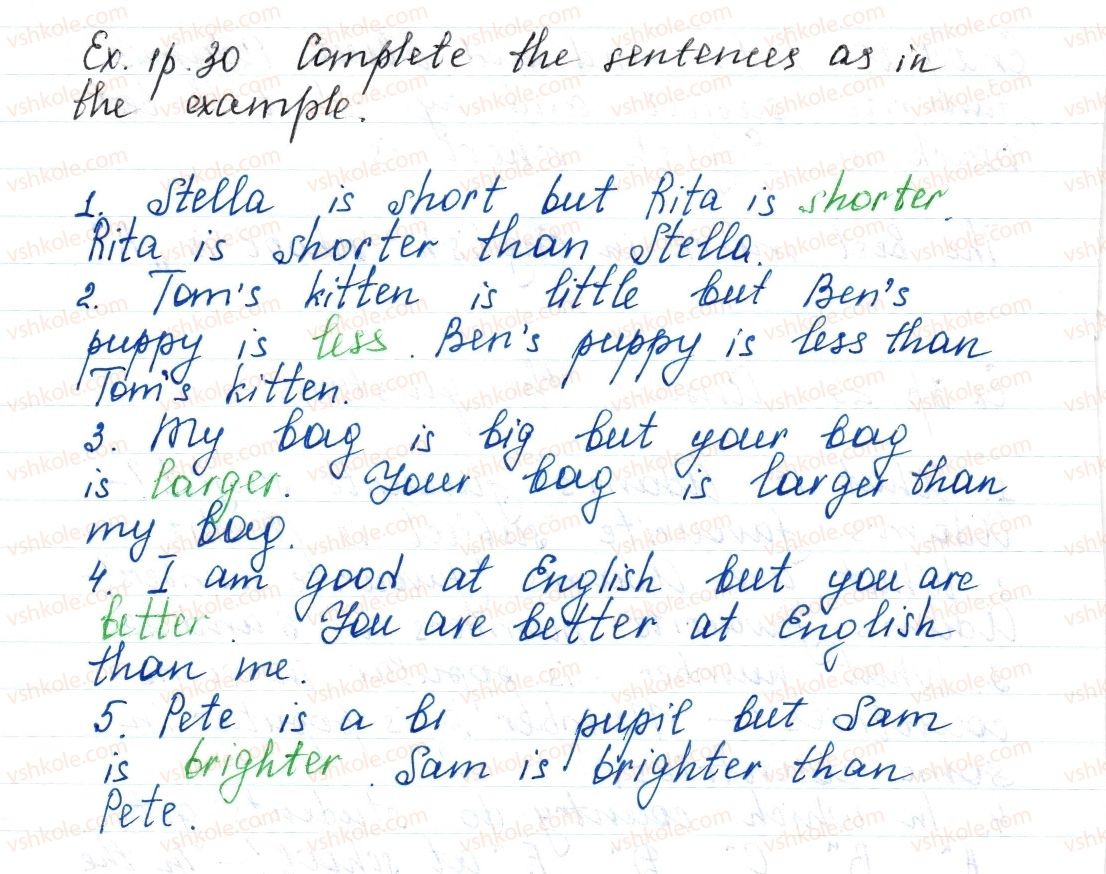 Ex. 1 p. 30 Complete the sentences as in
the example.
1. Stella is short but Rita is shorter.
Rita is shorter than Stella.
2. Tom's kitten is little but Ben's
puppy is less. Ben's puppy is less than
Tom's kitten.
3. My bag is big but your bag
is larger. Your bag is larger than
my bag.
4. I am good at English but you are
better. You are better at English
than me.
5. Pete is a br pupil but Sam
is brighter. Sam is brighter than
Pete.